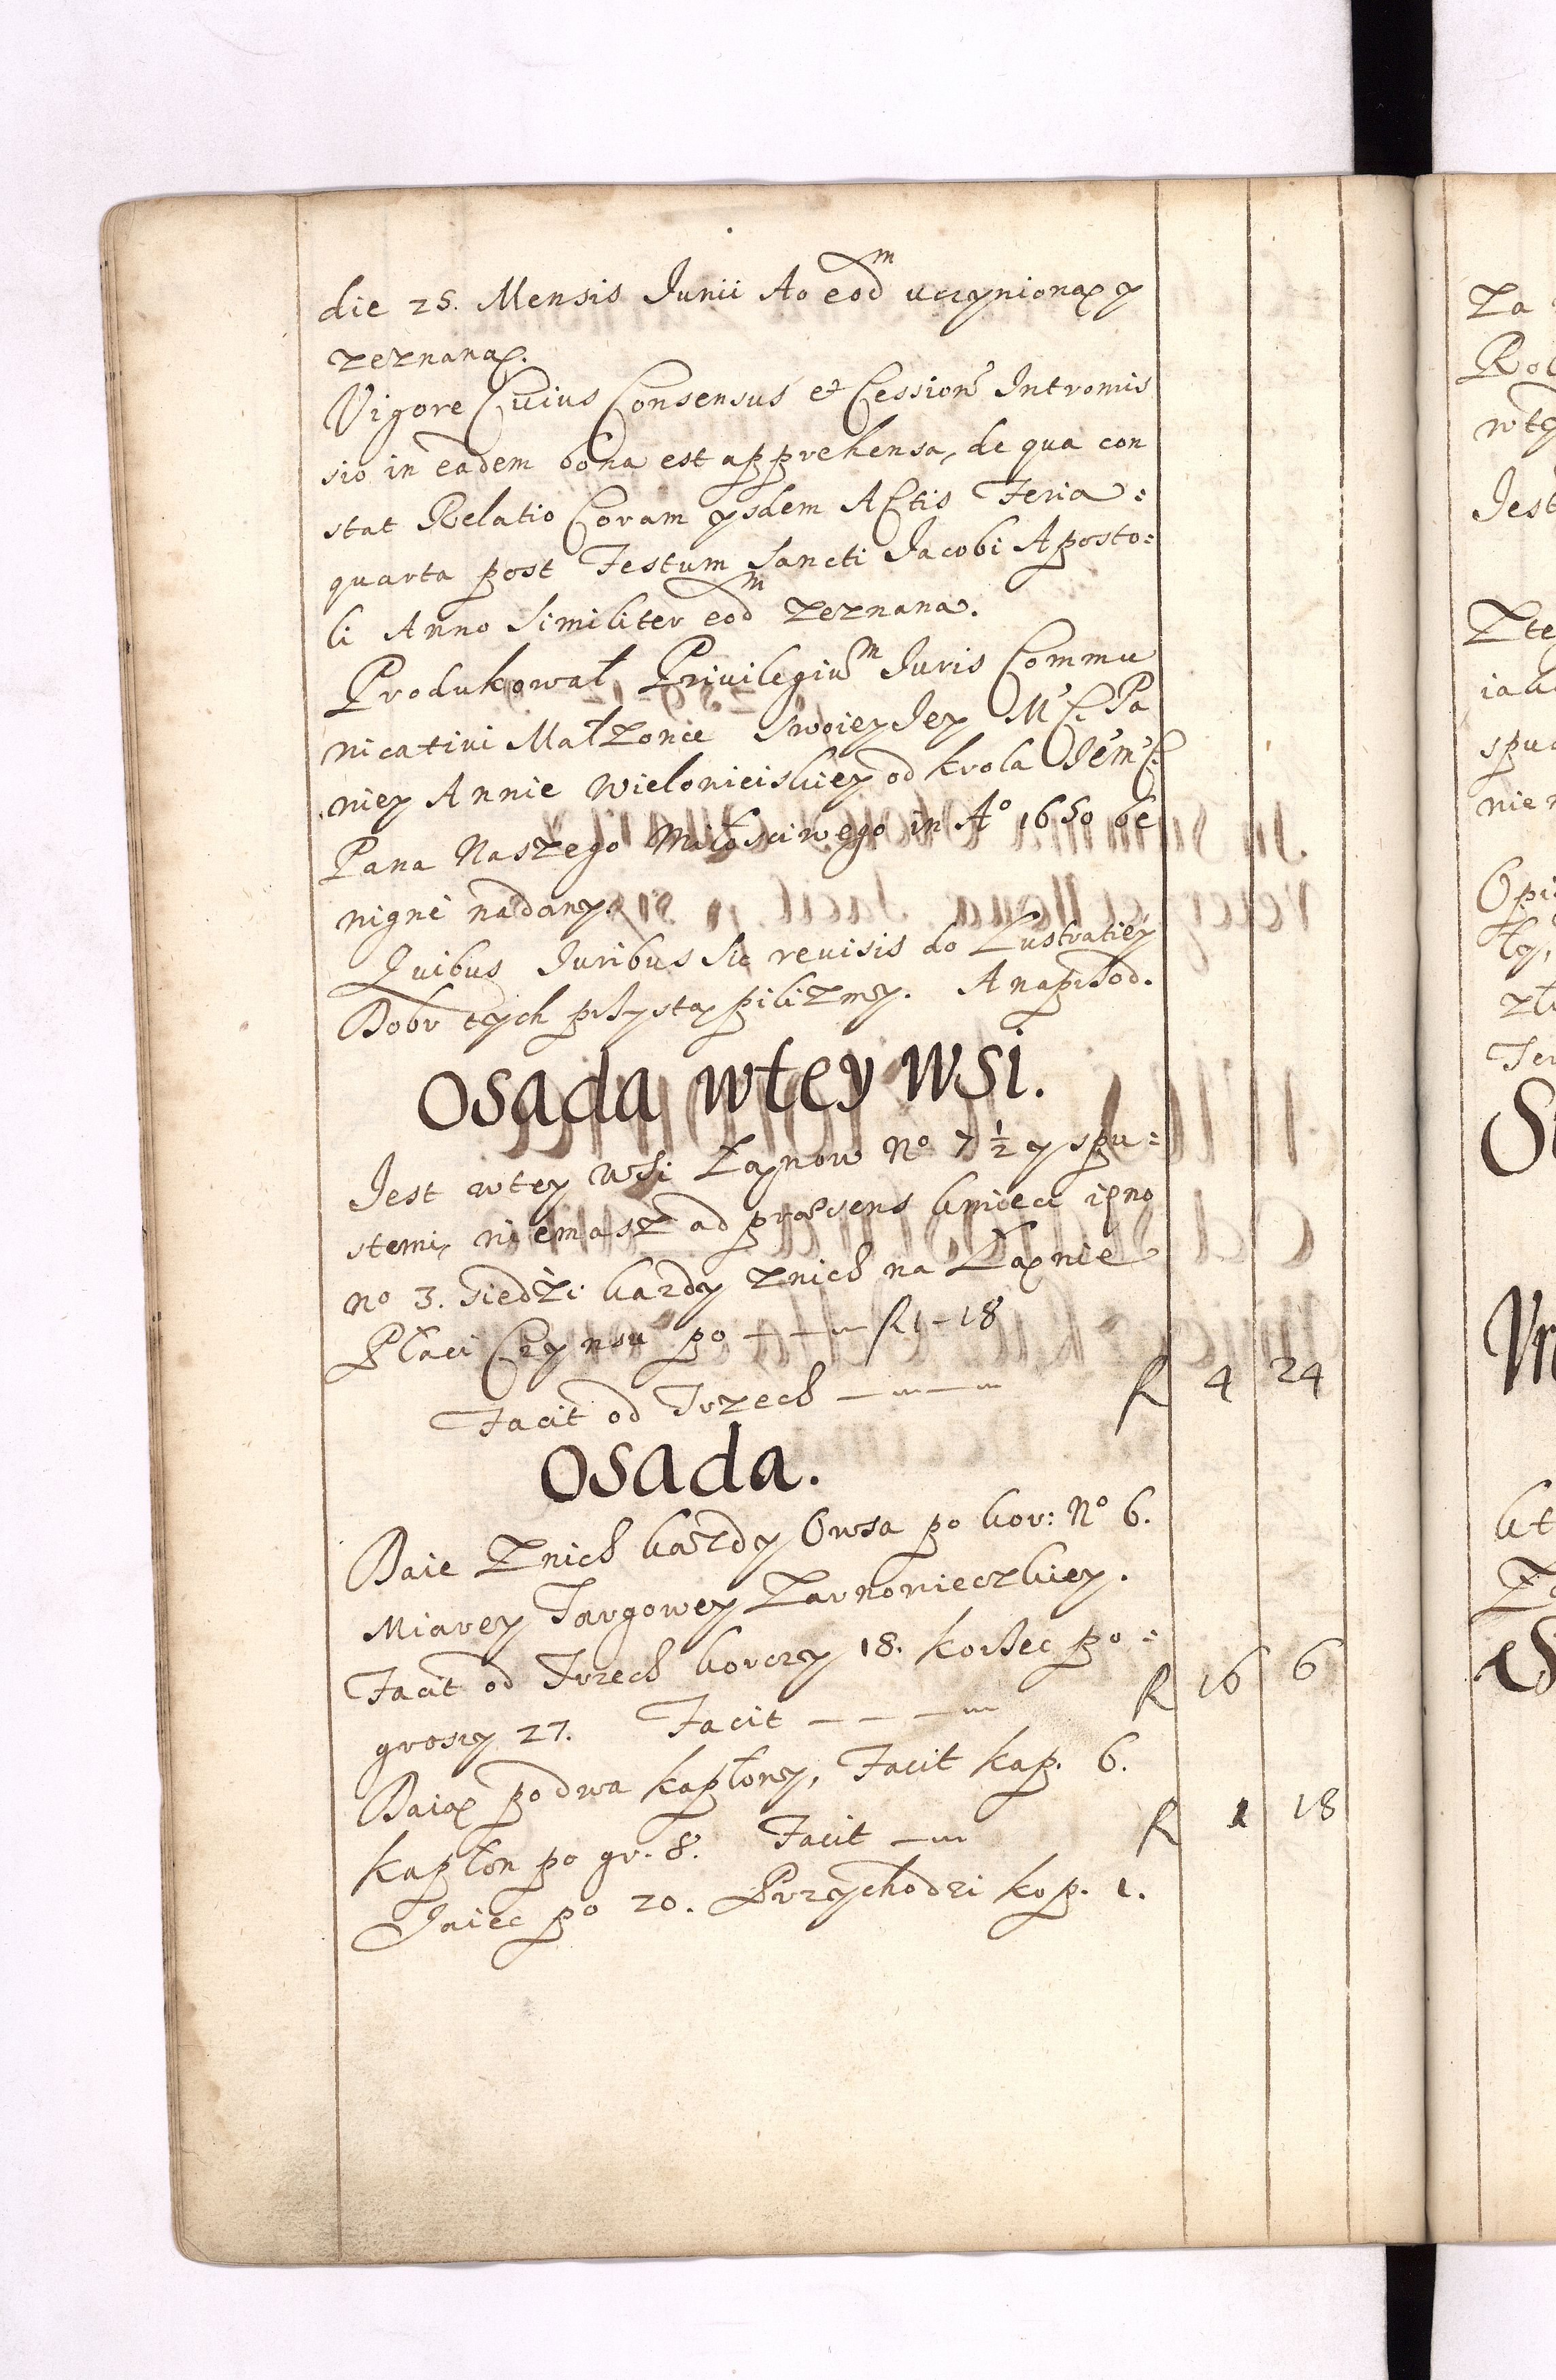 die 25. Mensis Junii Ao eod̃m ucżynioną y
zeznaną.
Vigore Cuius Consensus et Cession̓ Intromis
sio in eadem bona est apprehensa, de qua con
stat Relatio Coram ysdem Actis Feria:
quarta post Festum Sancti Jacobi Aposto:
li Anno Similiter eod̃m zeznana.
Produkował Priuilegiũm Juris Commu
nicatiui Małzonce Swoiey Jey M̓C. Pa
niey Annie Wielowieiskiey od Krola Je̓m̓C
Pana Naszego Miłosciwego in Aº 1650 be
nigne nadany.
Quibus Juribus Sic reuisis do Lustratiey
Dobr tych przystąpilizmy. A naprzod.
Osada wtey Wsi.
Jest wtey wsi Łanow Nº 7½ y z pu:
stemi, niemasz ad præsens kmieci ięno
nº 3. siedzi kazdy znich na Łanie
Płaci Czynsu po — — — f 1 — 18
Facit od Trzech — — — f 4 24
Osada.
Daie Znich kazdy Owsa po kor: Nº 6.
Miarey Targowey Zarnowieczkiey.
Facit od Trzech korczy 18. Korzec po:
groszy 27. Facit — — — f 16 6
Daią po dwa kapłony, Facit kap. 6.
Kapłon po gr. 8. Facit — f 1 18
Jaiec po 20. Przychodzi kop. 1.